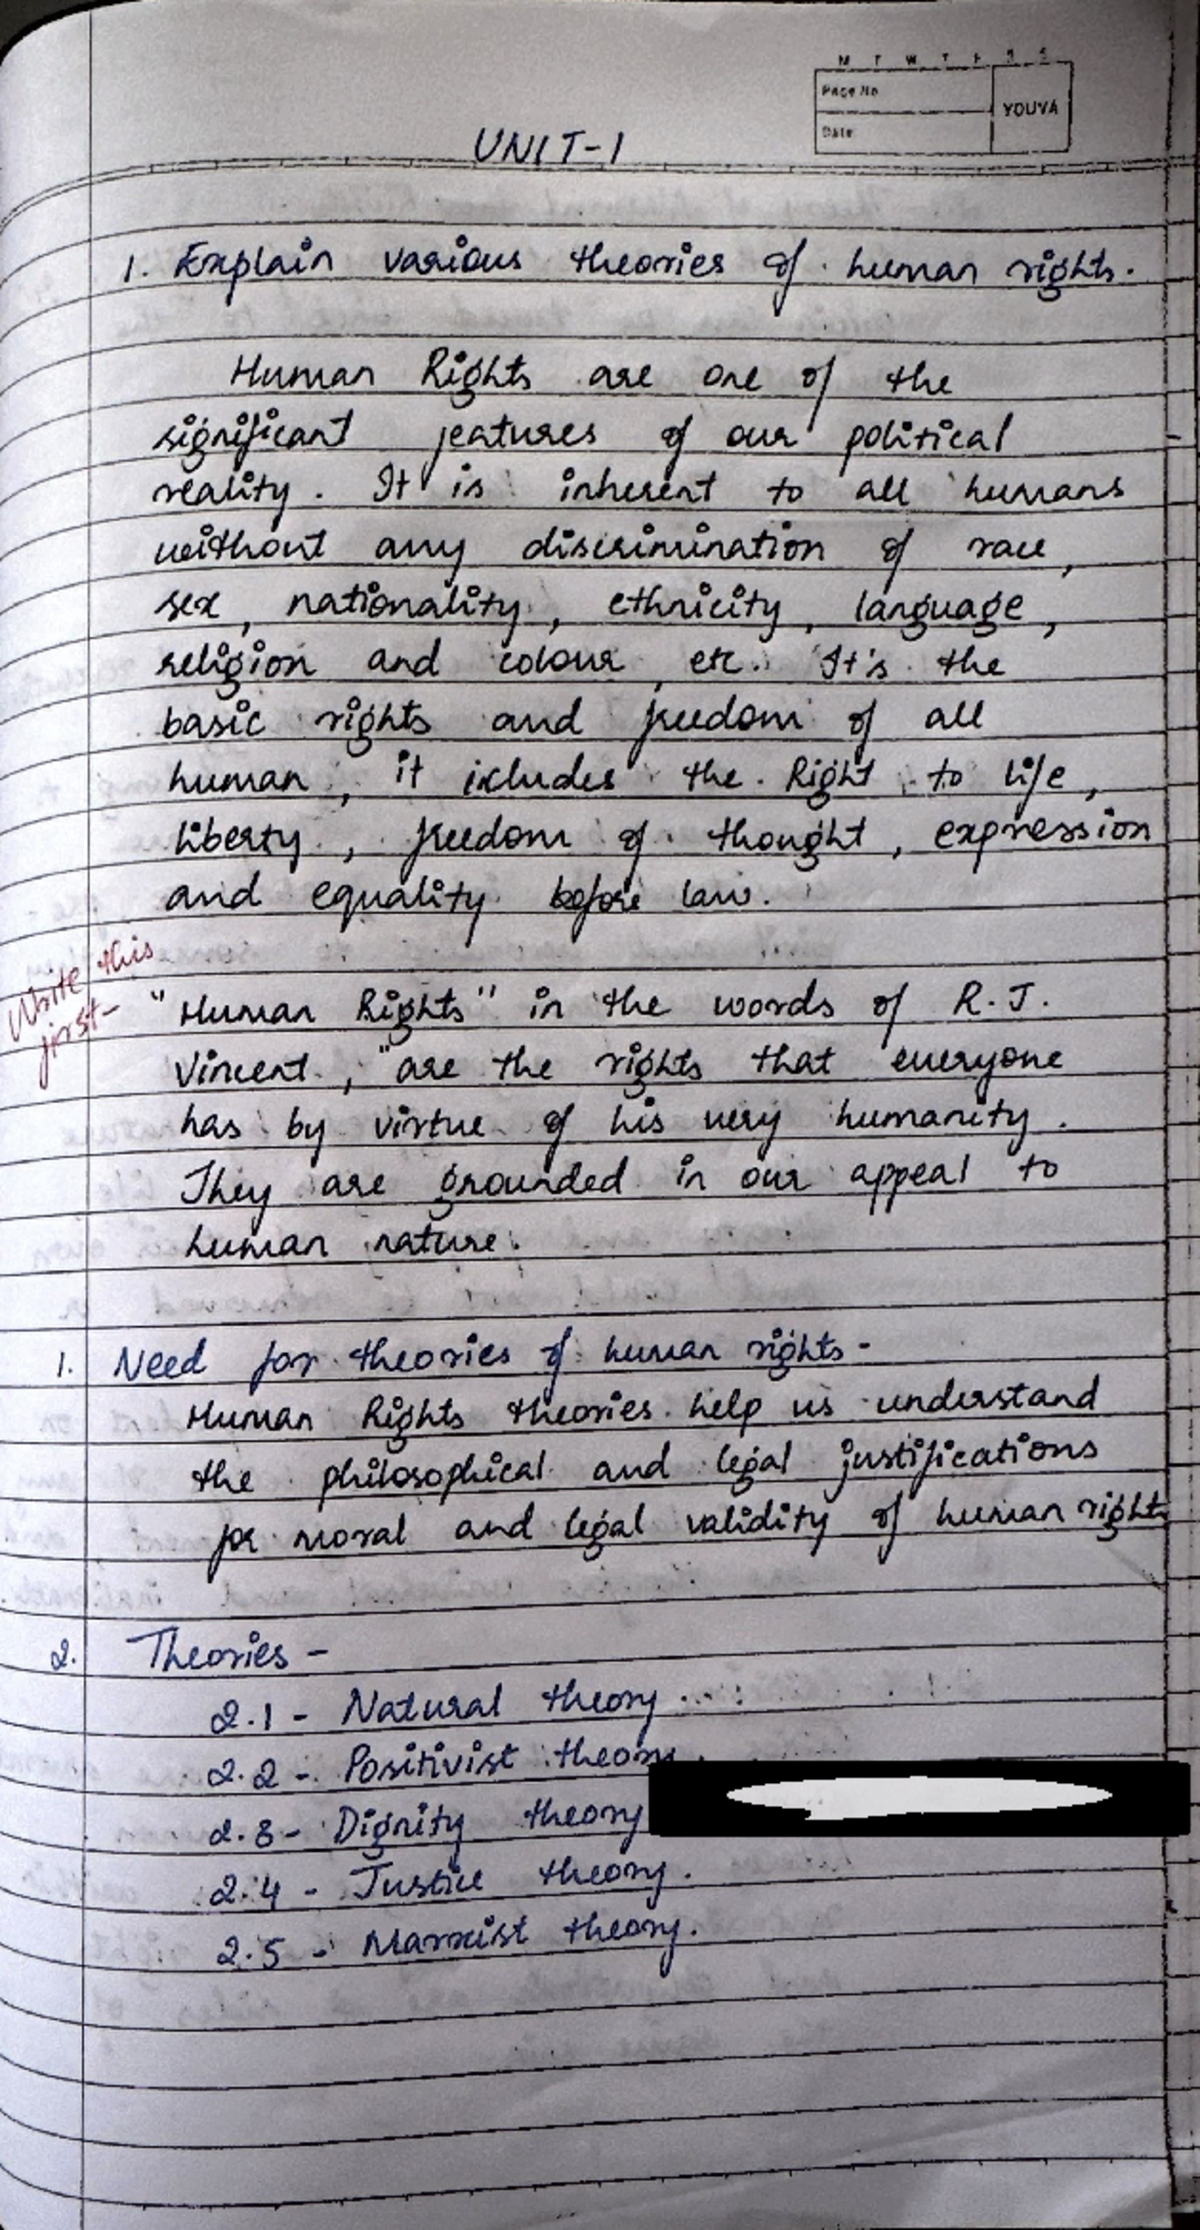 M T W T F S S
Page No
YOUVA
Date
UNIT-1
1. Explain various theories of human rights.
Human Rights are one of the
significant features of our political
reality. It is inherent to all humans
without any discrimination of race,
sex, nationality, ethnicity, language,
religion and colour, etc. It's the
basic rights and freedom of all
human, it includes the Right to life,
liberty, freedom of thought, expression
and equality before law.
Write this
first-
"Human Rights" in the words of R.J.
Vincent, "are the rights that everyone
has by virtue of his very humanity.
They are grounded in our appeal to
human nature.
1. Need for theories of human rights-
Human Rights theories help us understand
the philosophical and legal justifications
for moral and legal validity of human right
2. Theories -
2.1 - Natural theory
2.2 - Positivist theory.
2.3 - Dignity theory
2.4 - Justice theory.
2.5 - Marxist theory.